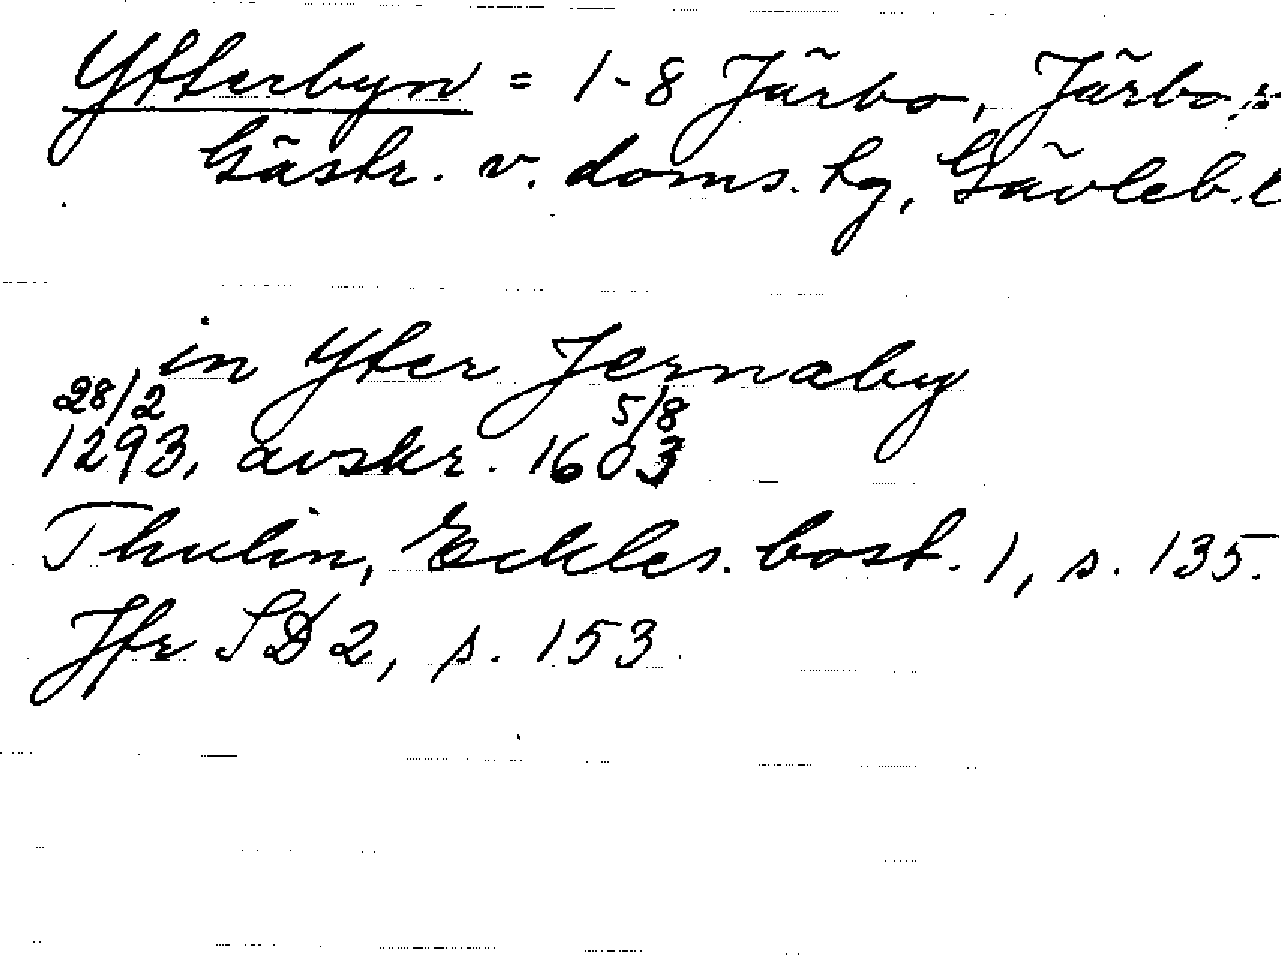 Ytterbyn = 1-8 Järbo, Järbo,
Gästr. v. doms. hg, Gävleb.
in Yter Jernaby
28/2 5/8
1293, avskr. 1603
Thulin, Eckles. bost. 1, s. 135.
Jfr SD 2, s. 153